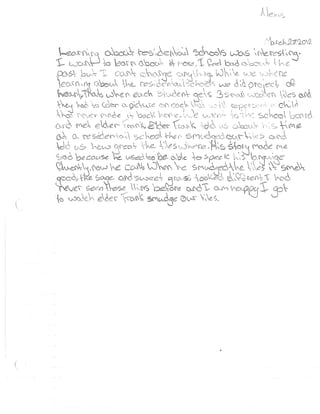 Alexus
March 27 2012
Learning about residentail schools was interesting.
I want to learn about it more, I feel bad about the
past but I can't change anything. While we where
learning about the residentail schools we did project of
heart, thats when each student gets 3 small wooden tiles and
they had to color a picture on each tile will represent a child
that never made it back home. We went to the school board
and met elder Frank. Elder Frank told us about his time
at a residentail school then smudged our tiles and
told us how great the tiles where. His story made me
sad because he used to be able to speak his languige
fluently, now he can't. When he smudged the tiles it smelt
good, the sage and sweet grass looked different I had
never seen those things before and I am happy I got
to watch elder Frank smudge our tiles.